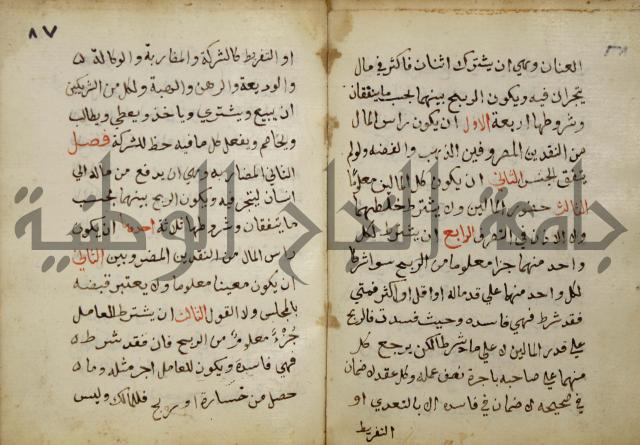 العنان وهي ان يشترك اثنان فاكثر في مال
يتجران فيه ويكون الربح بينهما بحسب ما يتفقان
وشروطها اربعة الاول ان يكون راس المال
من النقدين المضروبين الذهب والفضه ولو لم
يتفق الجنس الثاني ان يكون كل المالين معلوما
الثالث حضور المالين ولا يشترط خلطهما
ولا الاذن في التصرف الرابع ان يشترط لكل
واحد منهما جزا معلوما من الربح سوا شرط
لكل واحد منهما علي قدر ماله او اقل او اكثر فمتي
فقد شرط فهي فاسده وحيث فسدت فالربح
علي قدر المالين لا علي ما شرطا لكن يرجع كل
منهما علي صاحبه باجرة نصف عمله وكل عقد لا ضمان
في صحيحه لا ضمان في فاسده الا بالتعدي او
التفريط
٨٧
او التفريط كالشركة والمضاربة والوكالة
والوديعة والرهن والهبة ولكل من الشريكين
ان يبيع ويشتري وياخذ ويعطي ويطالب
ويخاصم ويفعل كل ما فيه حظ للشركة فصل
الثاني المضاربه وهي ان يدفع من ماله الي
انسان ليتجر فيه ويكون الربح بينهما بحسب
ما يتفقان وشروطها ثلاثة احدها ان يكون
راس المال من النقدين المضروبين الثاني
ان يكون معينا معلوما ولا يعتبر قبضه
بالمجلس ولا القول الثالث ان يشترط للعامل
جزء معلوم من الربح فان فقد شرط
فهي فاسدة ويكون للعامل اجر مثله وما
حصل من خسارة او ربح فللمالك وليس
جامعة النجاح الوطنية